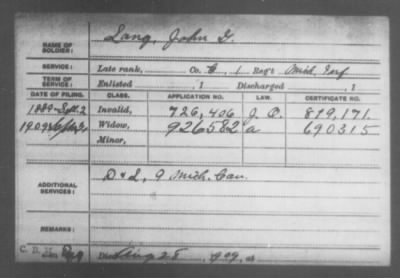 NAME OF SOLDIER: Lang, John G.
SERVICE: Late rank, Co. G, 1 Reg't Mich. Inf
TERM OF SERVICE: Enlisted , 1 Discharged , 1
DATE OF FILING. CLASS. APPLICATION NO. LAW. CERTIFICATE NO.
1889-Sept. 2 Invalid, 726,406 J. O. 819,171.
1909 Widow, 926582 a 690315
Minor,
ADDITIONAL SERVICES: D & L, 9 Mich. Cav.
REMARKS:
C. D. H. Died Aug 28, 1909, at